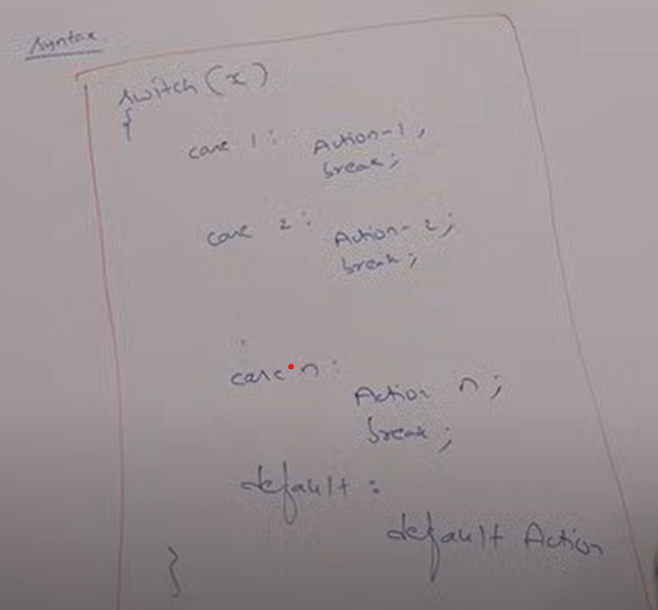 Syntax
switch (x)
{
case 1: Action-1,
break;
case 2: Action-2;
break;
case n:
Action n;
break;
default:
default Action
}